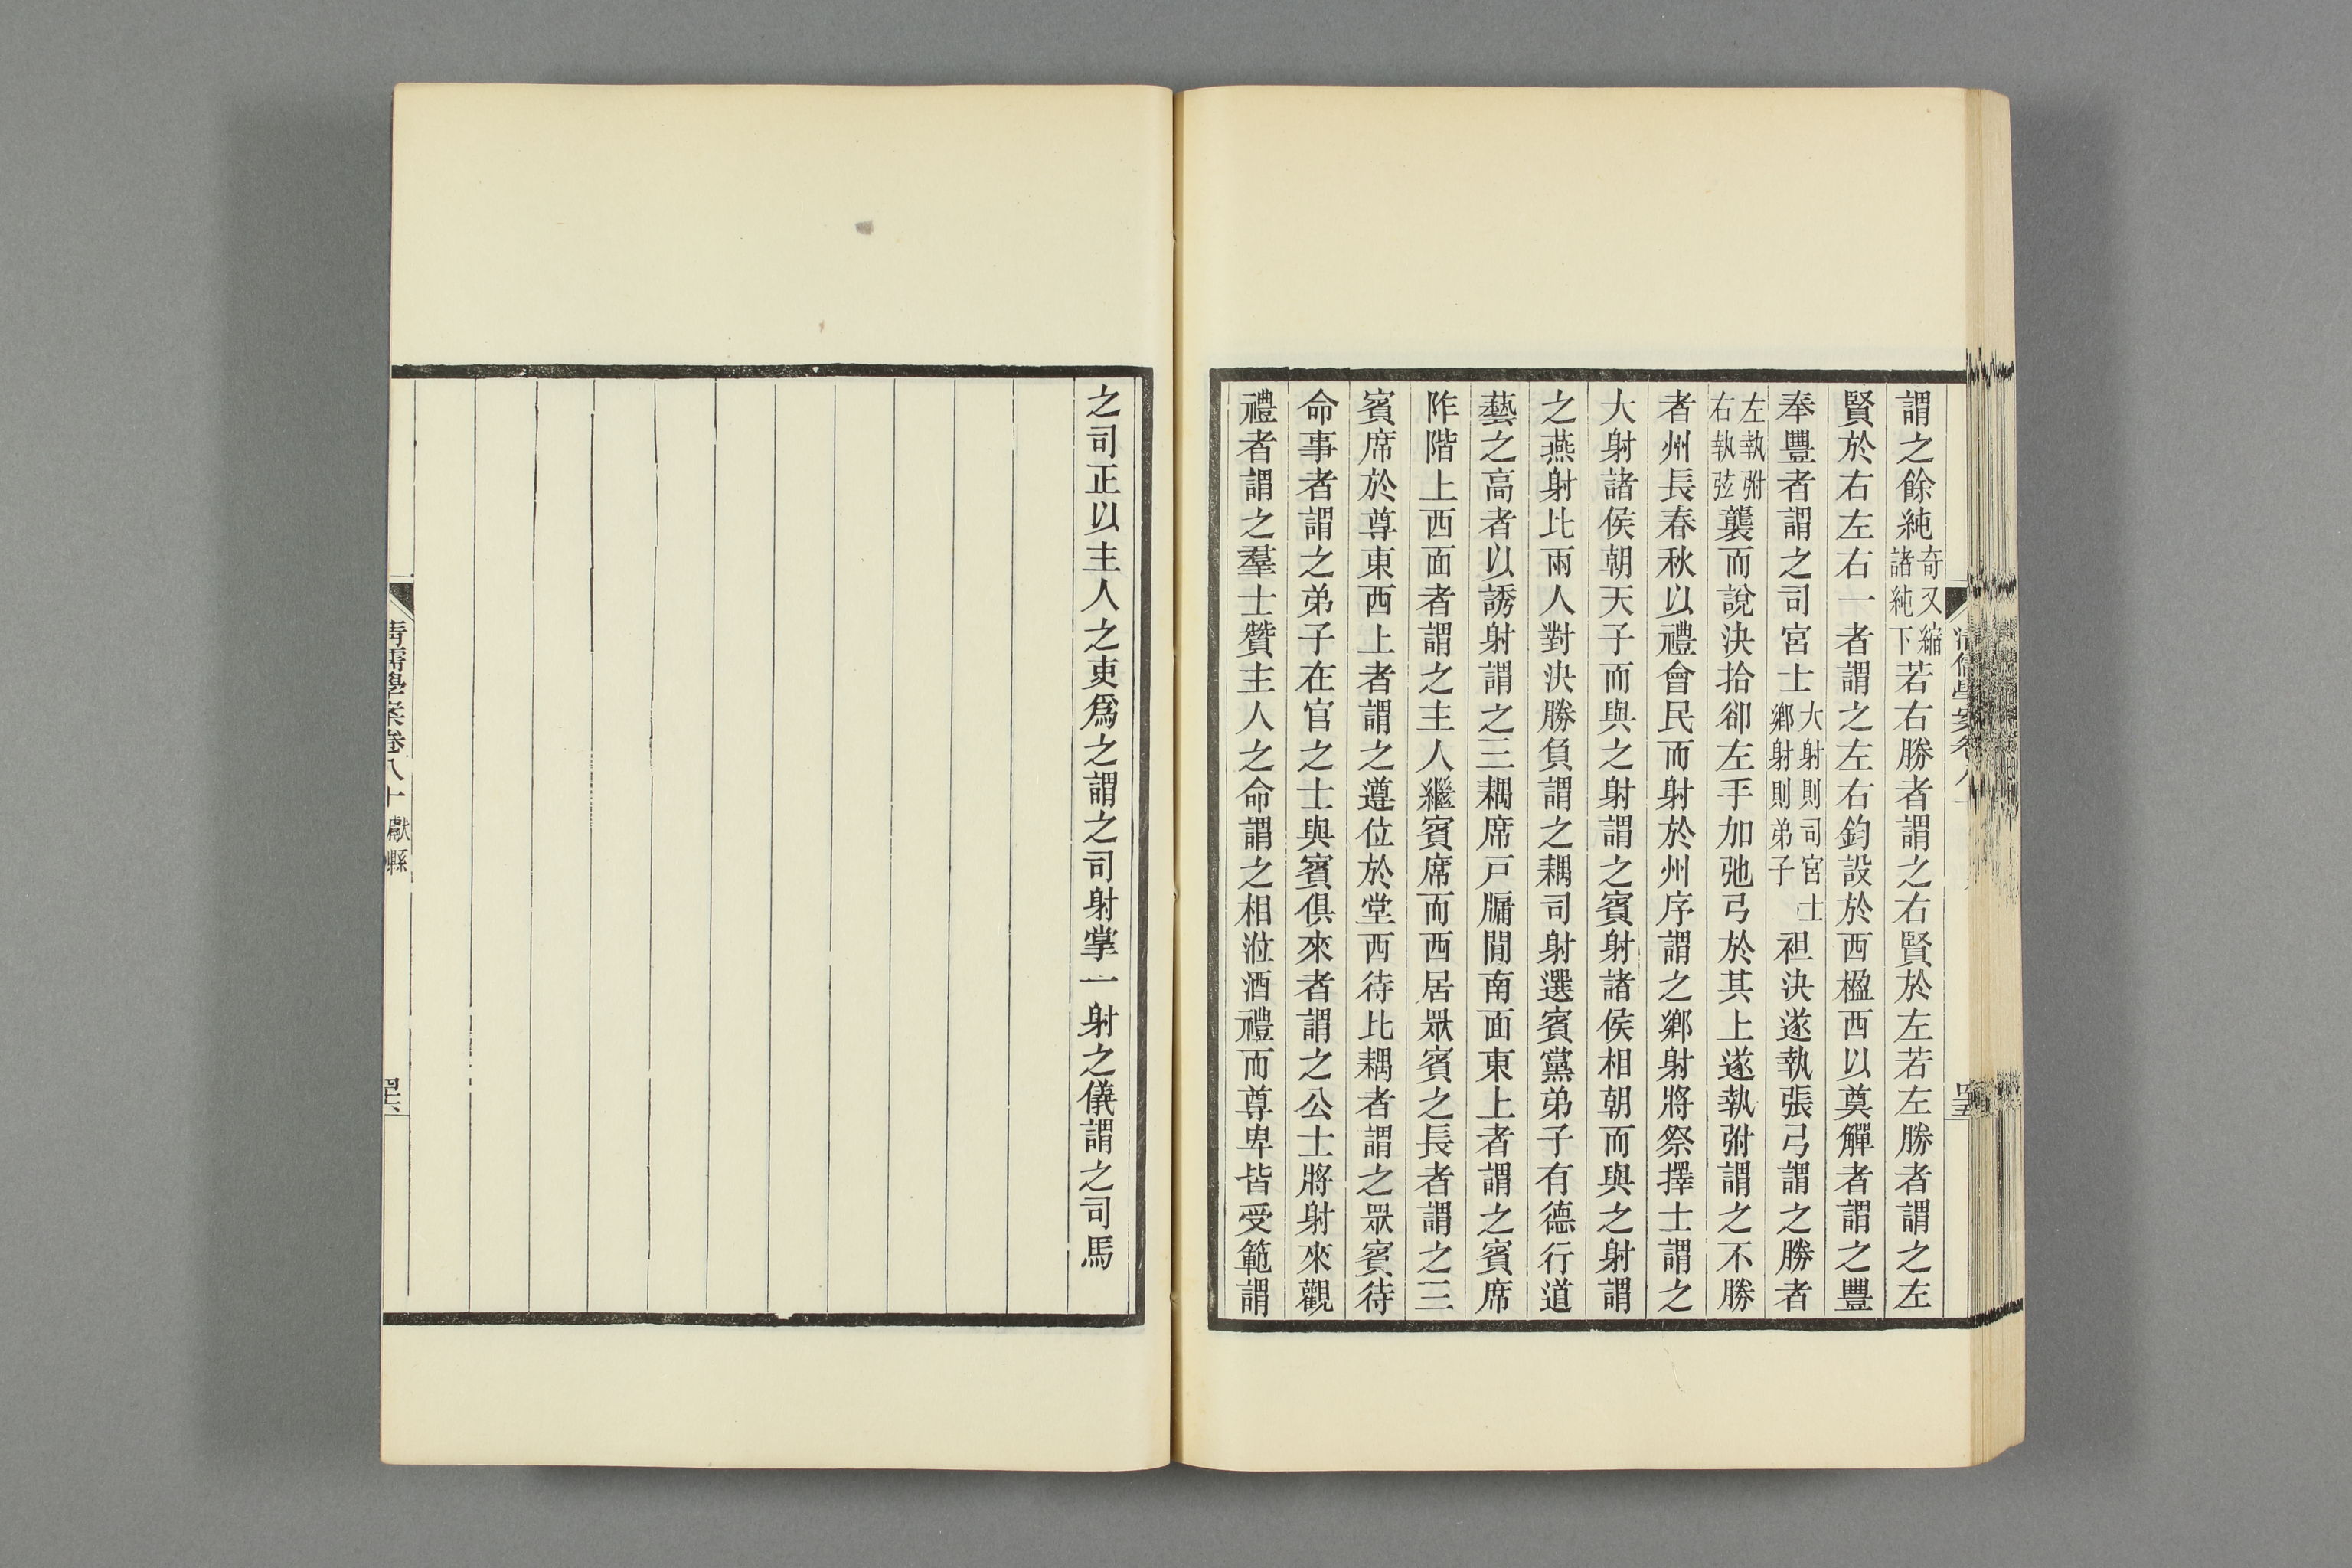 謂之餘純奇又縮諸純下若右勝者謂之右賢於左若左勝者謂之左
賢於右左右一者謂之左右鈞設於西楹西以奠觶者謂之豐
奉豐者謂之司宮士大射則司宮士鄉射則弟子袒決遂執張弓謂之勝者
左執弣右執弦襲而說決拾卻左手加弛弓於其上遂執弣謂之不勝
者州長春秋以禮會民而射於州序謂之鄉射將祭擇士謂之
大射諸侯朝天子而與之射謂之賓射諸侯相朝而與之射謂
之燕射比兩人對決勝負謂之耦司射選賓黨弟子有德行道
藝之高者以誘射謂之三耦席戶牖閒南面東上者謂之賓席
阼階上西面者謂之主人繼賓席而西居眾賓之長者謂之三
賓席於尊東西上者謂之遵位於堂西待比耦者謂之眾賓待
命事者謂之弟子在官之士與賓俱來者謂之公士將射來觀
禮者謂之羣士贊主人之命謂之相涖酒禮而尊卑皆受範謂
之司正以主人之吏為之謂之司射掌一射之儀謂之司馬
清儒學案卷八十獻縣